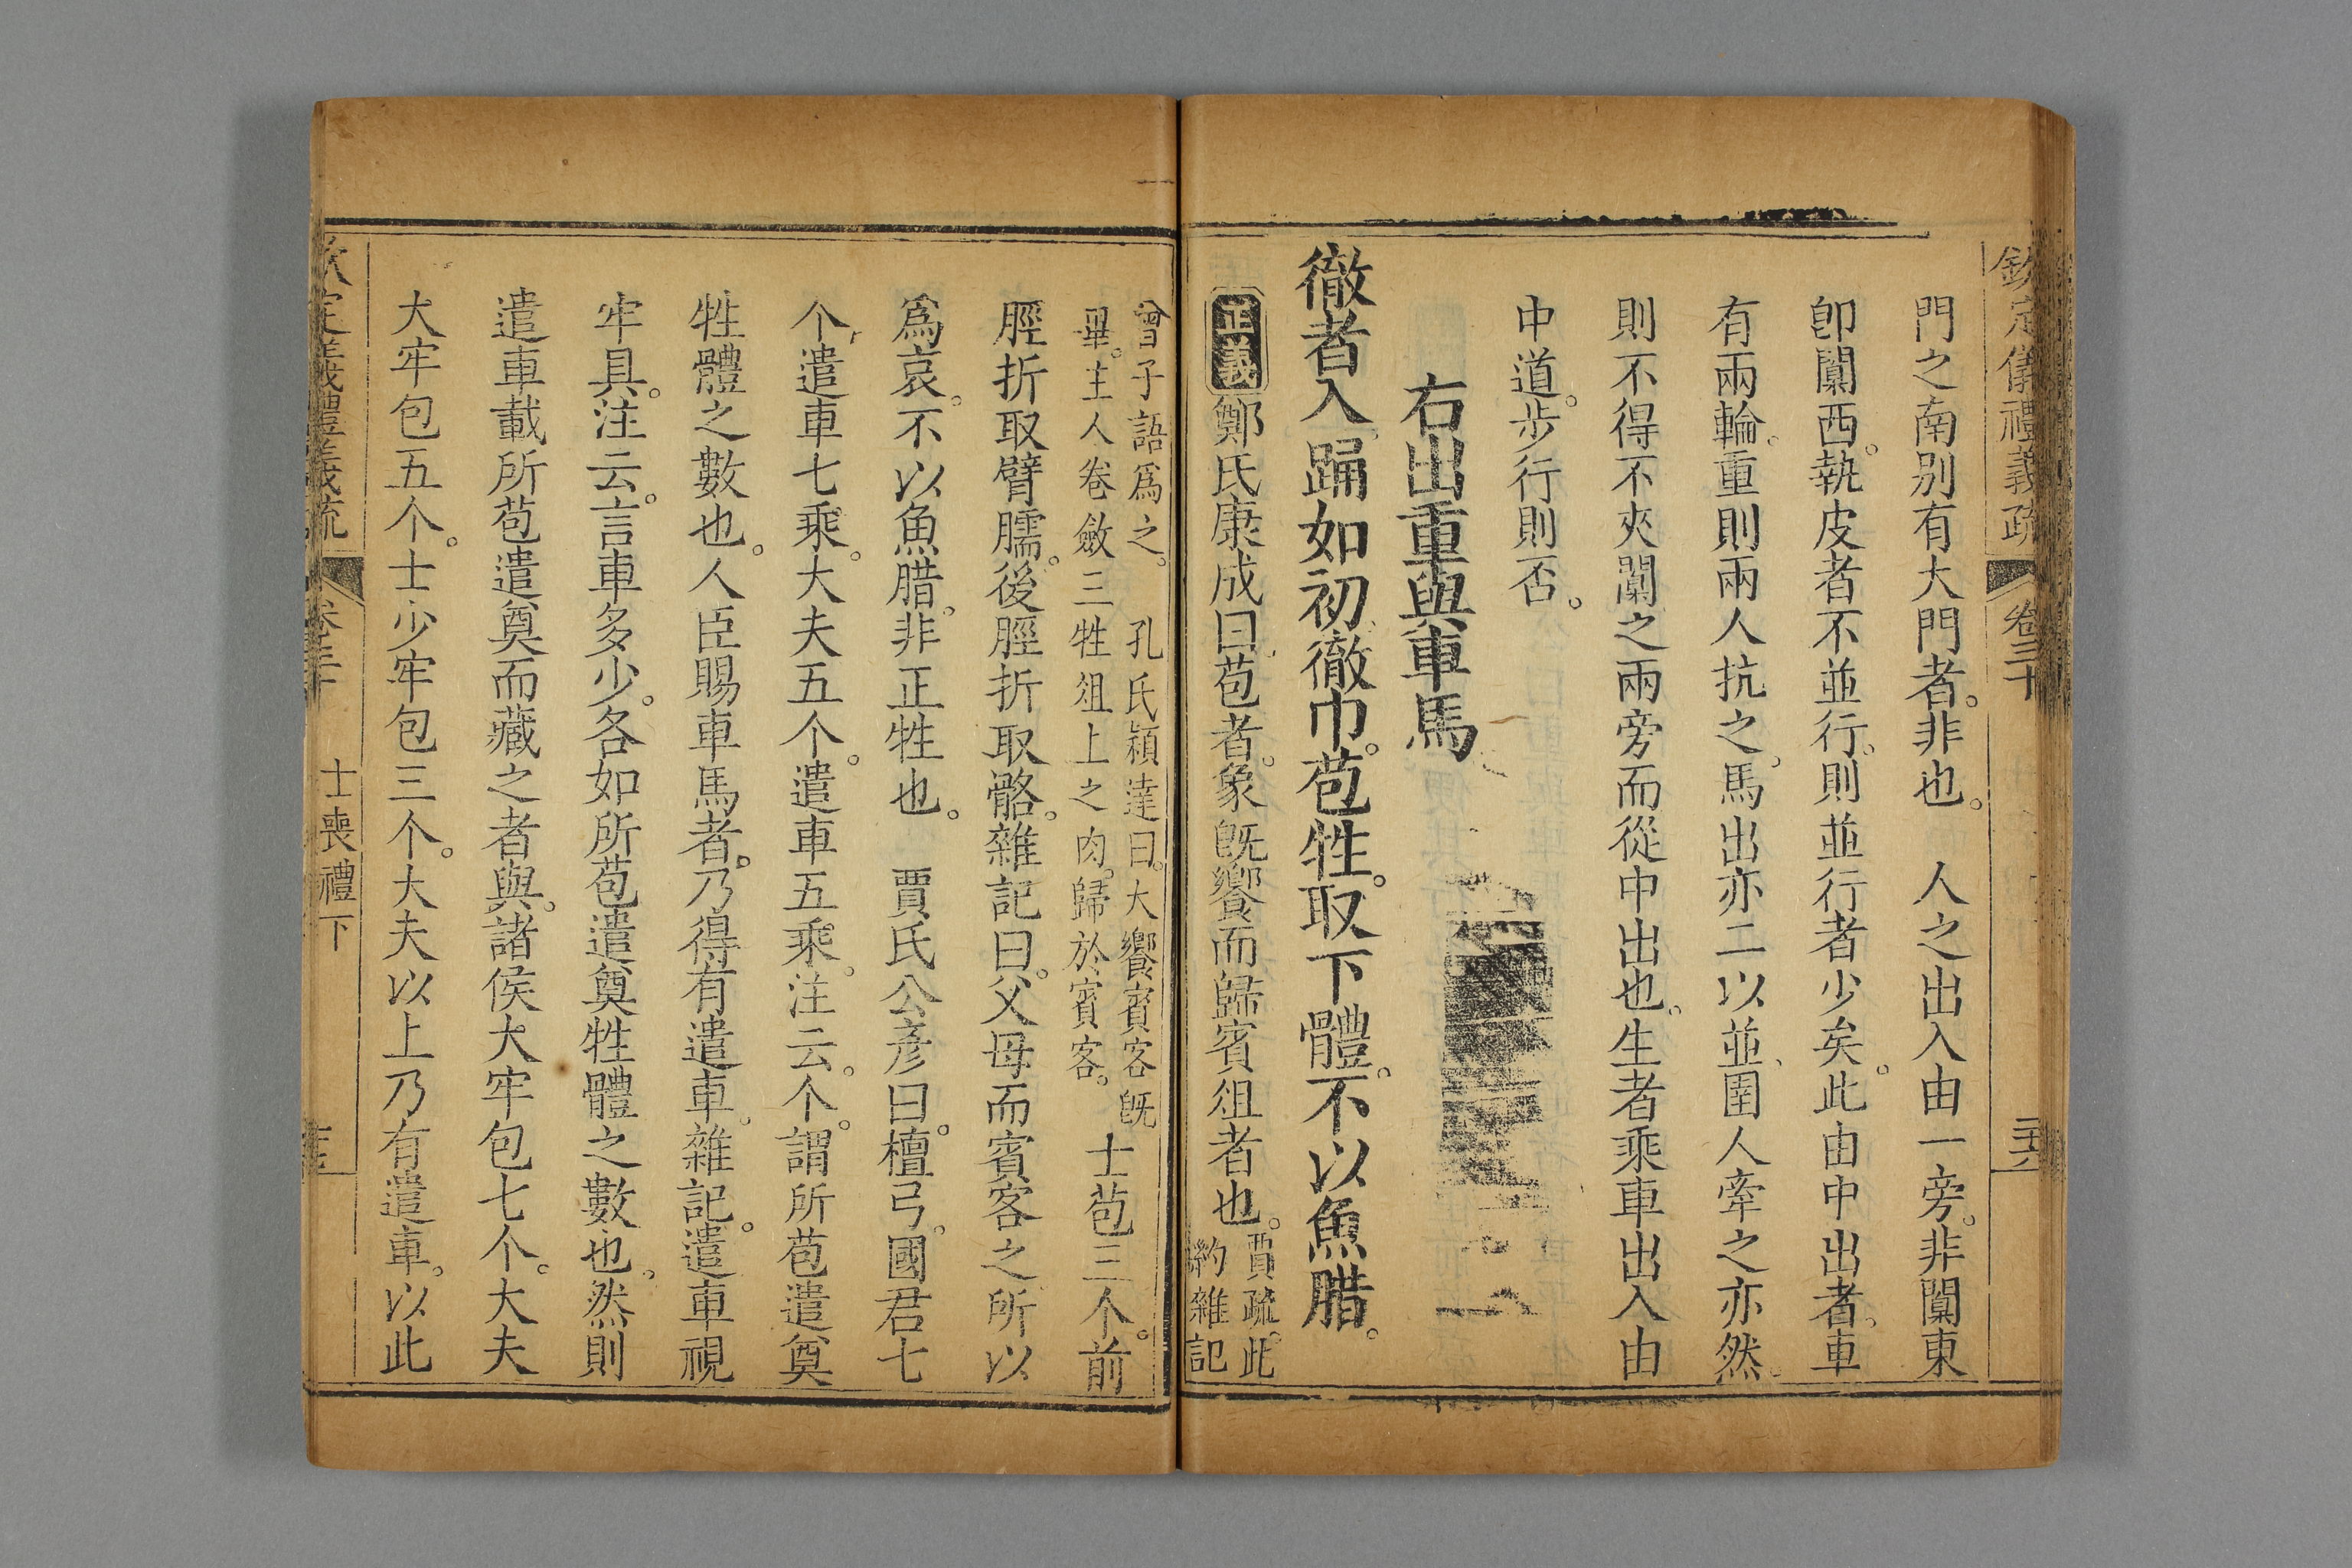 欽定儀禮義疏 卷三十
門之南別有大門者。非也。 人之出入由一旁。非闑東
卽闑西。執皮者不並行。則並行者少矣。此由中出者。車
有兩輪。重則兩人抗之。馬出亦二以並、圉人牽之亦然。
則不得不夾闑之兩旁而從中出也。生者乘車出入由
中道。步行則否。
右出重與車馬
徹者入。踊如初。徹巾。苞牲。取下體。不以魚腊。
正義鄭氏康成曰。苞者。象旣饗而歸賓俎者也。賈疏。此
約雜記
曾子語爲之。 孔氏穎達曰。大饗賓客旣
畢。主人卷斂三牲俎上之肉。歸於賓客。士苞三个。前
脛折取臂臑。後脛折取骼。雜記曰。父母而賓客之。所以
爲哀。不以魚腊。非正牲也。 賈氏公彥曰。檀弓。國君七
个遣車七乘。大夫五个。遣車五乘。注云。个。謂所苞遣奠
牲體之數也。人臣賜車馬者。乃得有遣車。雜記。遣車視
牢具。注云。言車多少。各如所苞遣奠牲體之數也。然則
遣車載所苞遣奠而藏之者與。諸侯大牢包七个。大夫
大牢包五个。士少牢包三个。大夫以上乃有遣車。以此
欽定儀禮義疏 卷三十 士喪禮下